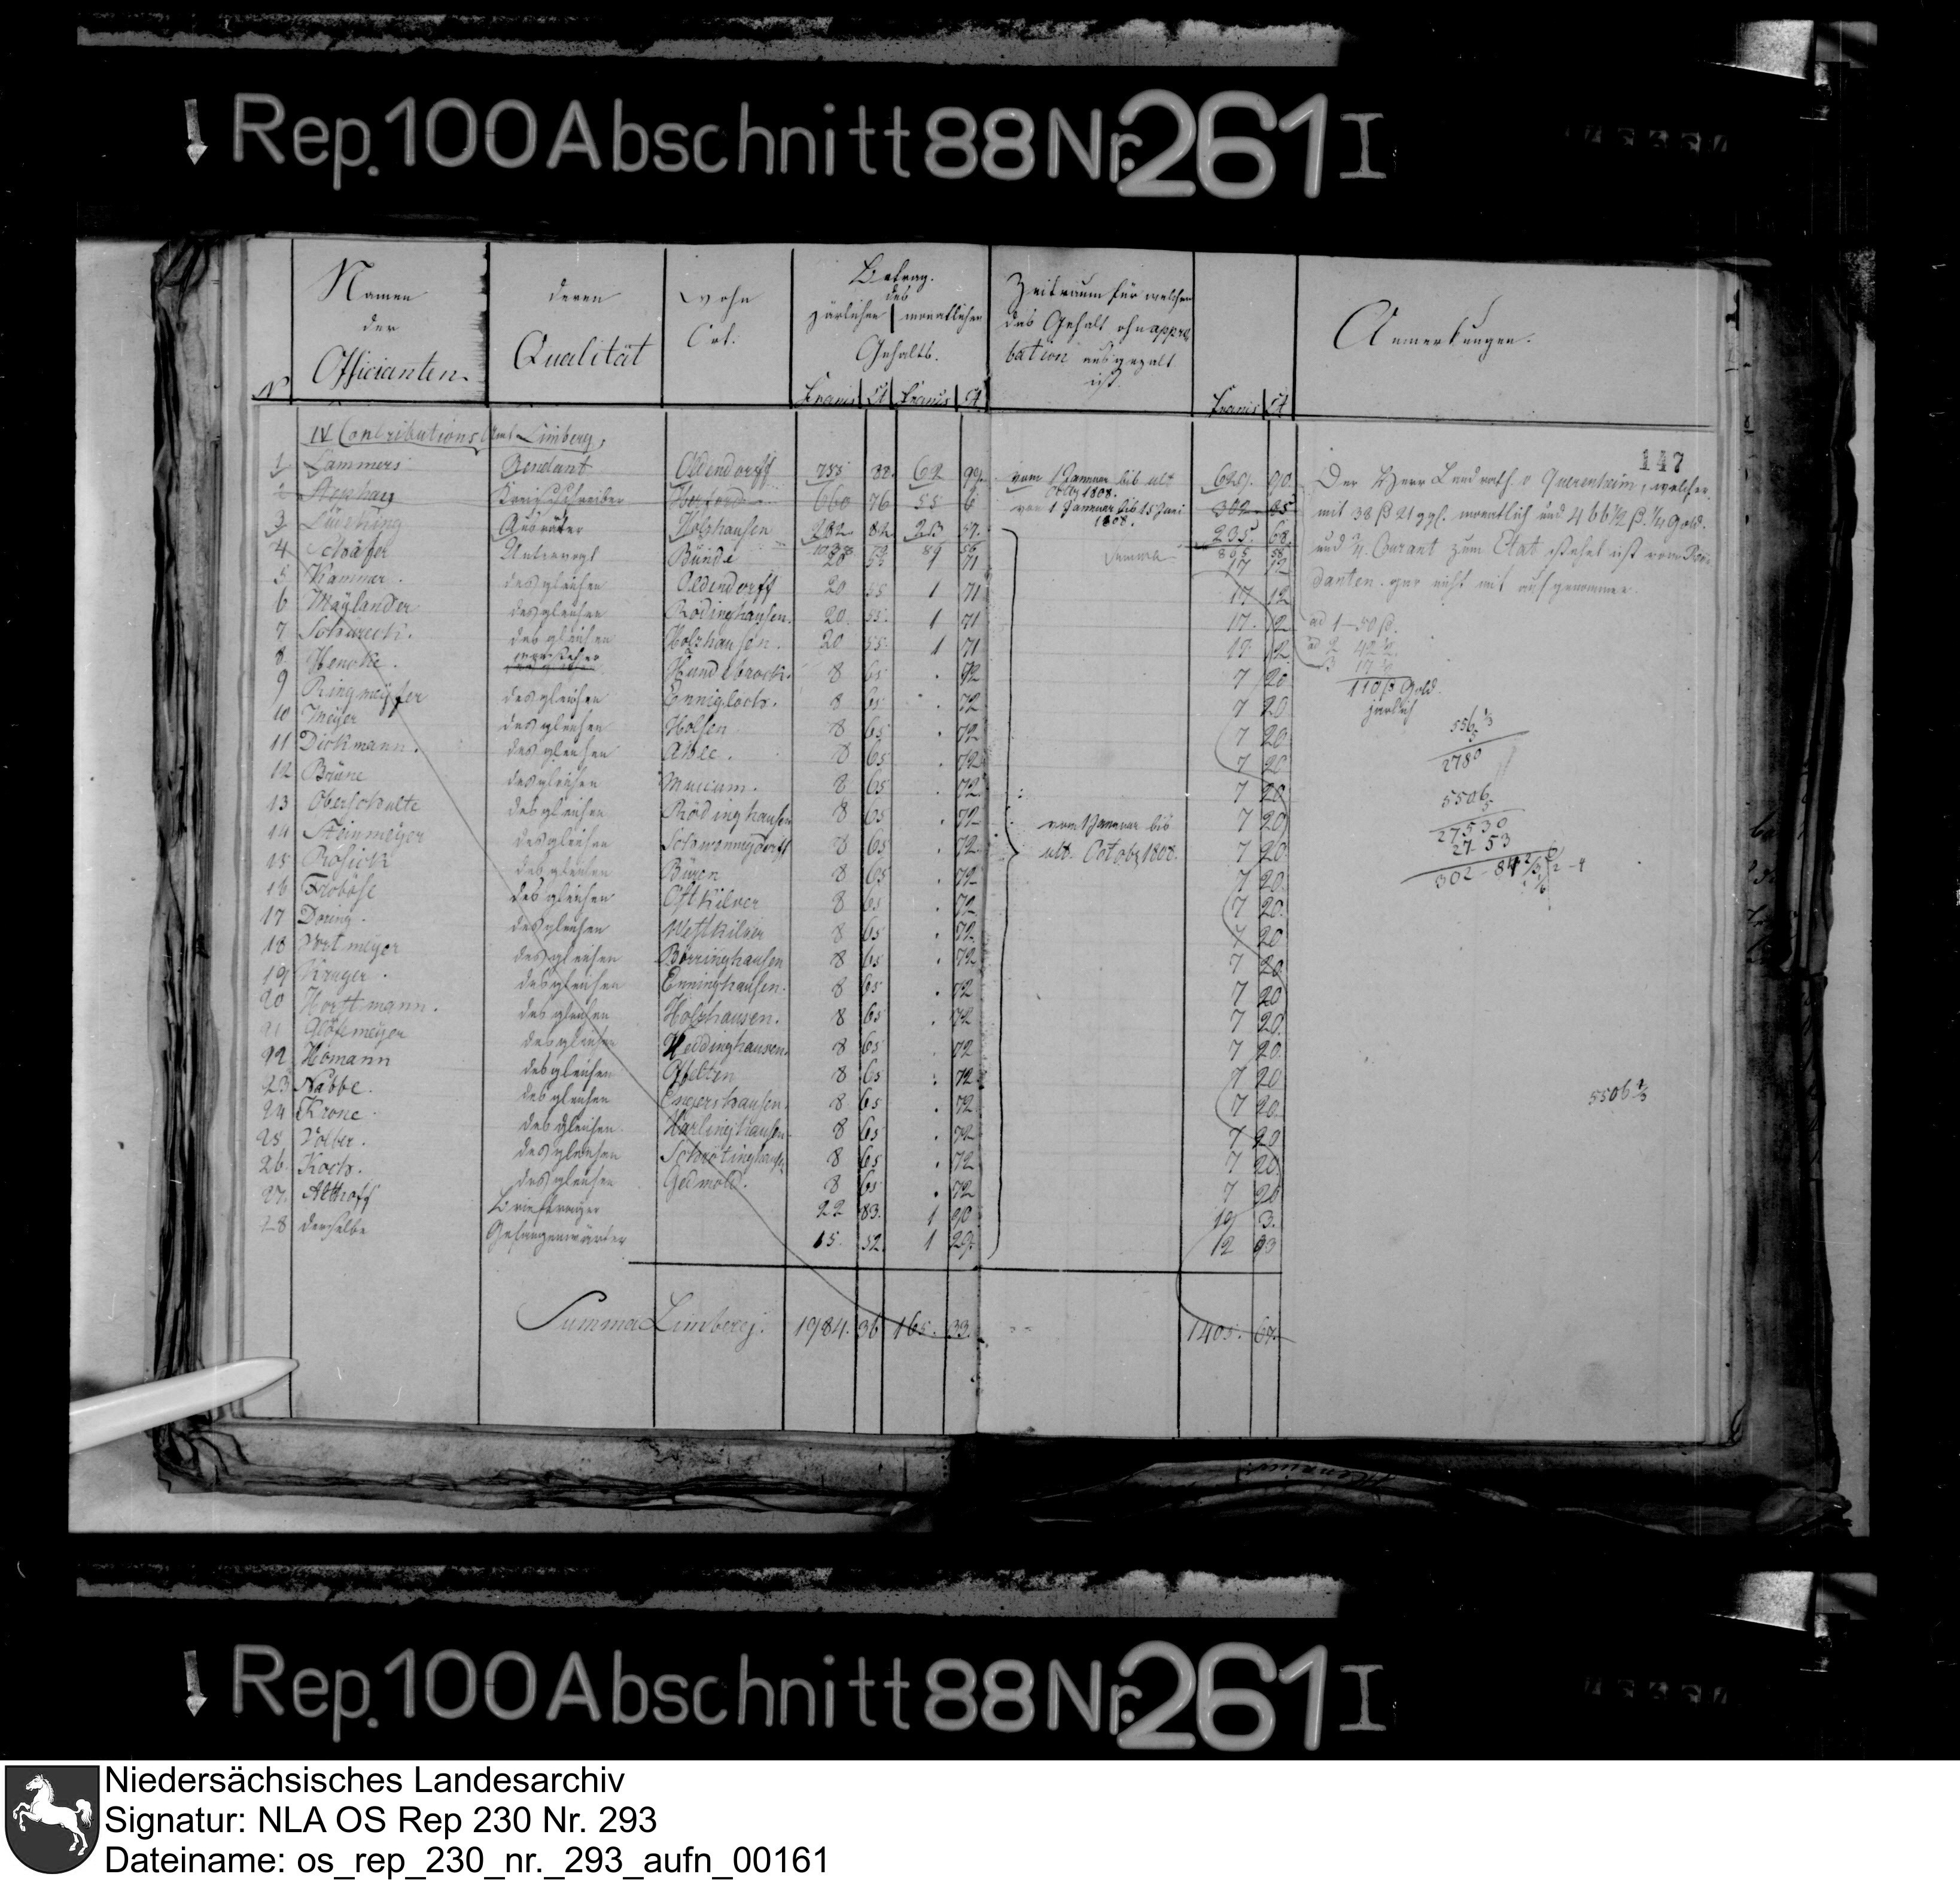 Rep. 100 Abschnitt 88 Nr. 261 I
Namen der Officianten
deren Qualität
Wohn Ort.
Betrag. des
järlichen | monatlichen
Gehalts.
Zeitraum für welchen
das Gehalt ohn appro
bation ausgezalt
ist.
Anmerkungen.
No Francs Ct Francs Ct Francs Ct
147
IV Contributions Amt Limberg,
1 Lammers Rendant Oldendorff 755 88. 62 99. vom 1 Januar bis ult Octbr 1808. 629. 90.
2 Stephany Kreisschreiber Herford 660 76 55 6 vom 1 Januar bis 15 Juni 1808. 302 85
3 Lüecking Ausreuter Holzhausen 282. 82 23. 57. 235. 68.
Summa 895 58
4 Schäfer Untervogt Bünde 20 55 1 71 17 12
5 Kammer. desgleichen Oldendorff 20 55 1 71 17 12
6 Maylander desgleichen Rödinghausen. 20. 55. 1 71 17. 12
7 Schureck. desgleichen Holzhausen. 20 55 1 71 17 12
8 Hencke. Vorsteher Hundebrock. 8 65 . 72 7 20
9 Ringmeyer desgleichen Ennigloch. 8 65 . 72 7 20
10 Meyer desgleichen Holsen 8 65 . 72 7 20
11 Dickmann. desgleichen Ahle. 8 65 . 72 7 20
12 Brüne desgleichen Muccum. 8 65 . 72 7 20
13 Oberschulte desgleichen Rödinghausen 8 65 . 72 7 20
14 Steinmeyer desgleichen Schwenningdorff 8 65 . 72 7 20
15 Rosick desgleichen Büren 8 65 . 72 7 20
16 Froböse desgleichen Ostkilver 8 65 . 72 7 20.
17 Doring. desgleichen Westkilver 8 65 . 72 7 20
18 Vortmeyer desgleichen Börringhausen 8 65 . 72 7 20
19 Kruger. desgleichen Enninghausen. 8 65 . 72 7 20
20 Horstmann. desgleichen Holzhausen. 8 65 . 72 7 20.
21 desgleichen Heddinghausen. 8 65 . 72 7 20
22 Homann desgleichen Offelten 8 65 . 72 7 20
23 Nabbe. desgleichen Engershausen. 8 65 . 72 7 20
24 Krone desgleichen Harlinghausen 8 65 . 72 7 20
25 Volber. desgleichen Schrötinghausen 8 65 . 72 7 20
26 Koch. desgleichen Gedmold. 8 65 . 72 7 20
27. Althoff Briefträger 22 83. 1 90 19 3.
28 derselbe Gefangenwärter 15. 52. 1 29. 12 93
vom 1 Januar bis
ult. Octobr 1808.
Summa Limberg. 1984. 36 165. 33. 1405. 67.
Der Herr Landrath v Quernheim, welcher
mit 38 ß 21 ggl. monatlich und 466 1/2 ß. 1/4 Gold.
und 3/4 Courant zum Etat stehet ist vom Ren
danten gar nicht mit aufgenommen.
ad 1 – 50 ß.
ad 2 42 1/2
3 17 1/2
110 ß Gold.
järlich
556 1/3
5
2780
5506
5
27530
27 53
302 - 84
5506 1/3
Rep. 100 Abschnitt 88 Nr. 261 I
Niedersächsisches Landesarchiv
Signatur: NLA OS Rep 230 Nr. 293
Dateiname: os_rep_230_nr._293_aufn_00161